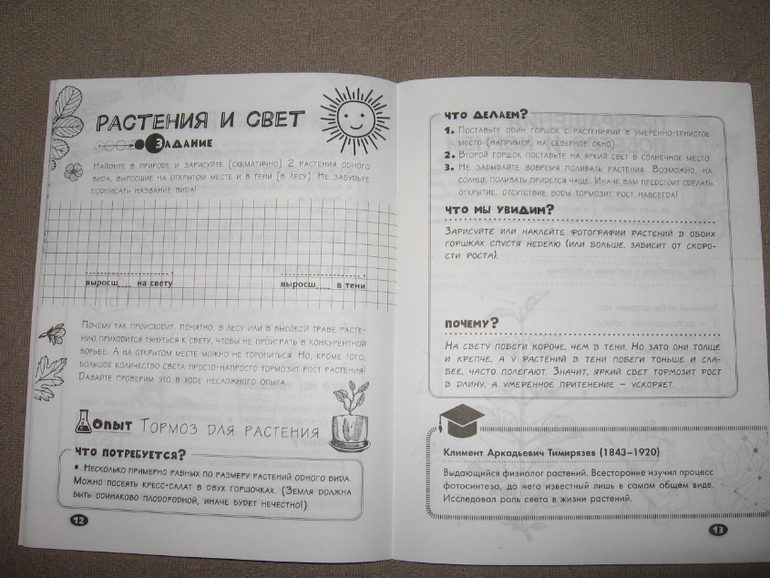 РАСТЕНИЯ И СВЕТ
ЗАДАНИЕ
НАЙДИТЕ В ПРИРОДЕ И ЗАРИСУЙТЕ (СХЕМАТИЧНО) 2 РАСТЕНИЯ ОДНОГО
ВИДА, ВЫРОСШИЕ НА ОТКРЫТОМ МЕСТЕ И В ТЕНИ (В ЛЕСУ). НЕ ЗАБУДЬТЕ
ПОДПИСАТЬ НАЗВАНИЕ ВИДА!
выросш___ на свету
выросш___ в тени
ПОЧЕМУ ТАК ПРОИСХОДИТ, ПОНЯТНО: В ЛЕСУ ИЛИ В ВЫСОКОЙ ТРАВЕ РАСТЕ-
НИЮ ПРИХОДИТСЯ ТЯНУТЬСЯ К СВЕТУ, ЧТОБЫ НЕ ПРОИГРАТЬ В КОНКУРЕНТНОЙ
БОРЬБЕ. А НА ОТКРЫТОМ МЕСТЕ МОЖНО НЕ ТОРОПИТЬСЯ. НО, КРОМЕ ТОГО,
БОЛЬШОЕ КОЛИЧЕСТВО СВЕТА ПРОСТО-НАПРОСТО ТОРМОЗИТ РОСТ РАСТЕНИЯ!
ДАВАЙТЕ ПРОВЕРИМ ЭТО В ХОДЕ НЕСЛОЖНОГО ОПЫТА.
ОПЫТ ТОРМОЗ ДЛЯ РАСТЕНИЯ
ЧТО ПОТРЕБУЕТСЯ?
• НЕСКОЛЬКО ПРИМЕРНО РАВНЫХ ПО РАЗМЕРУ РАСТЕНИЙ ОДНОГО ВИДА.
МОЖНО ПОСЕЯТЬ КРЕСС-САЛАТ В ДВУХ ГОРШОЧКАХ. (ЗЕМЛЯ ДОЛЖНА
БЫТЬ ОДИНАКОВО ПЛОДОРОДНОЙ, ИНАЧЕ БУДЕТ НЕЧЕСТНО!)
12
ЧТО ДЕЛАЕМ?
1. ПОСТАВЬТЕ ОДИН ГОРШОК С РАСТЕНИЯМИ В УМЕРЕННО-ТЕНИСТОЕ
МЕСТО (НАПРИМЕР, НА СЕВЕРНОЕ ОКНО)
2. ВТОРОЙ ГОРШОК ПОСТАВЬТЕ НА ЯРКИЙ СВЕТ В СОЛНЕЧНОЕ МЕСТО.
3. НЕ ЗАБЫВАЙТЕ ВОВРЕМЯ ПОЛИВАТЬ РАСТЕНИЯ. ВОЗМОЖНО, НА
СОЛНЦЕ ПОЛИВАТЬ ПРИДЕТСЯ ЧАЩЕ. ИНАЧЕ ВАМ ПРЕДСТОИТ СДЕЛАТЬ
ОТКРЫТИЕ: ОТСУТСТВИЕ ВОДЫ ТОРМОЗИТ РОСТ НАВСЕГДА!
ЧТО МЫ УВИДИМ?
ЗАРИСУЙТЕ ИЛИ НАКЛЕЙТЕ ФОТОГРАФИИ РАСТЕНИЙ В ОБОИХ
ГОРШКАХ СПУСТЯ НЕДЕЛЮ (ИЛИ БОЛЬШЕ, ЗАВИСИТ ОТ СКОРО-
СТИ РОСТА).
ПОЧЕМУ?
НА СВЕТУ ПОБЕГИ КОРОЧЕ, ЧЕМ В ТЕНИ. НО ЗАТО ОНИ ТОЛЩЕ
И КРЕПЧЕ, А У РАСТЕНИЙ В ТЕНИ ПОБЕГИ ТОНЬШЕ И СЛА-
БЕЕ, ЧАСТО ПОЛЕГАЮТ. ЗНАЧИТ, ЯРКИЙ СВЕТ ТОРМОЗИТ РОСТ
В ДЛИНУ, А УМЕРЕННОЕ ПРИТЕНЕНИЕ – УСКОРЯЕТ.
Климент Аркадьевич Тимирязев (1843–1920)
Выдающийся физиолог растений. Всесторонне изучил процесс
фотосинтеза, до него известный лишь в самом общем виде.
Исследовал роль света в жизни растений.
13